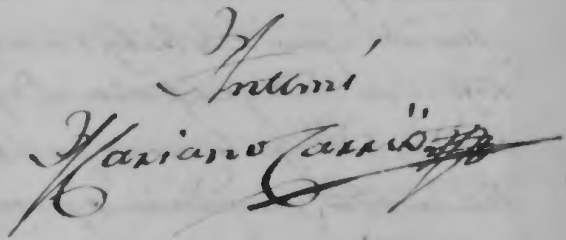 Antemi
Mariano Carrió